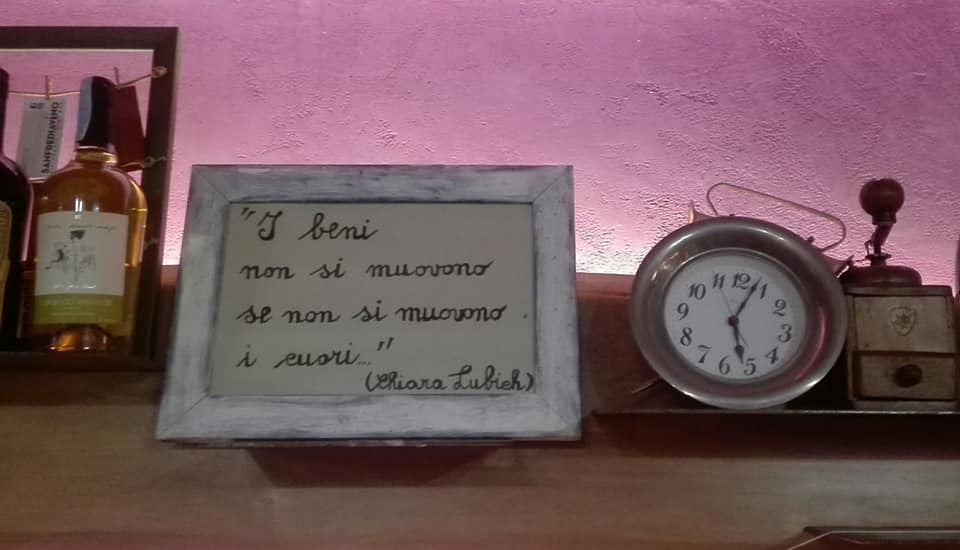 "I beni
non si muovono
se non si muovono
i cuori..."
(Chiara Lubich)
SANFREDIAVINO
11 12 1
10 2
9 3
8 4
7 6 5